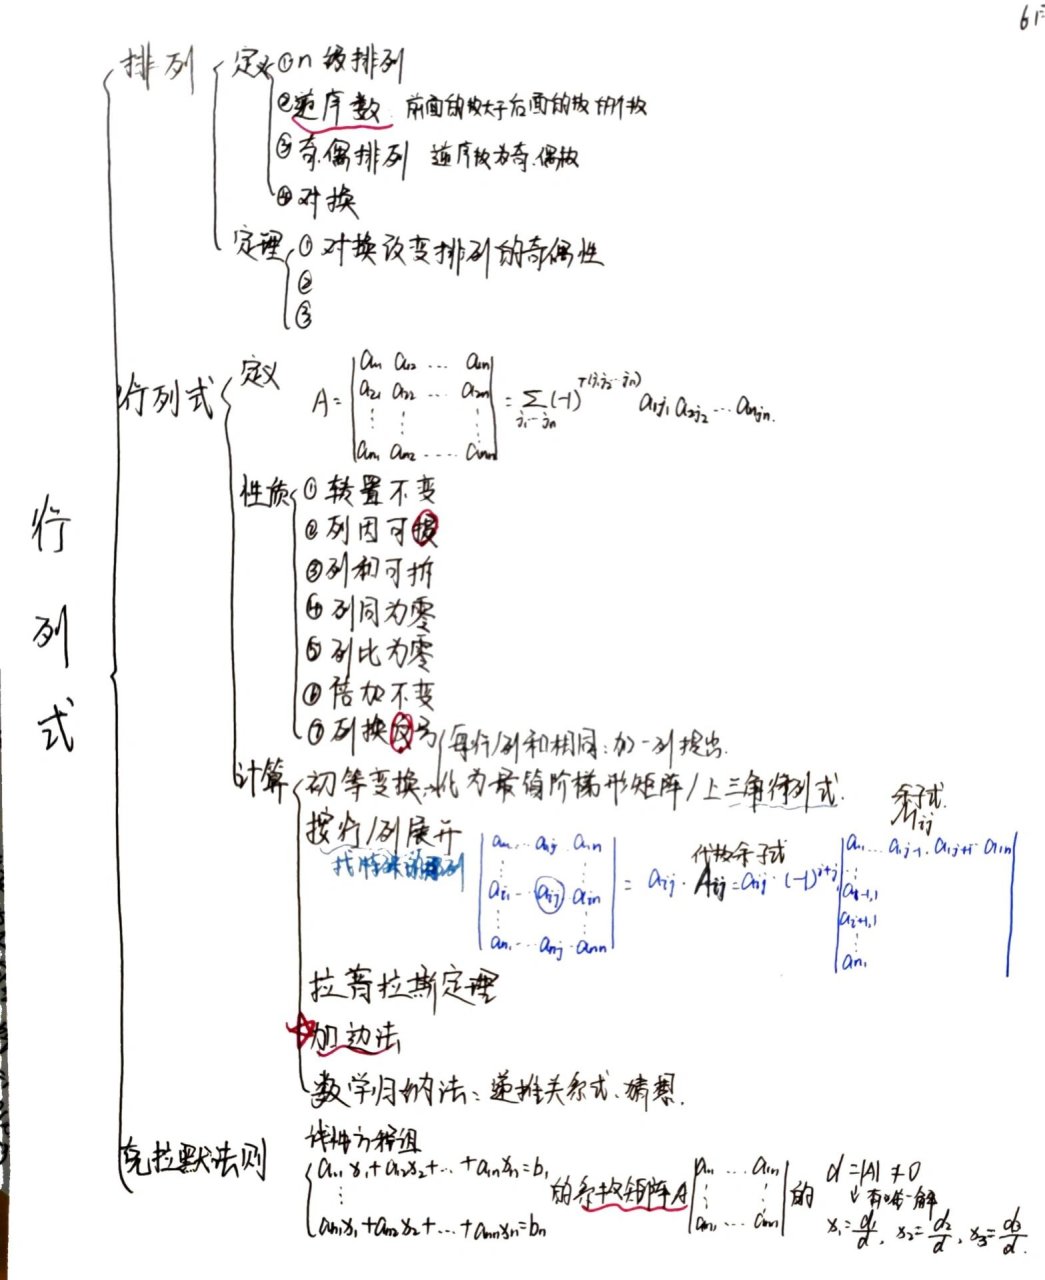 排列
定义 ① n级排列
② 逆序数 前面的数大于后面的数的个数
③ 奇.偶排列 逆序数为奇.偶数
④ 对换
定理 ① 对换改变排列的奇偶性
②
③
行列式
定义
A = | a11 a12 ... a1n | a21 a22 ... a2n | ⋮ ⋮ ⋮ | an1 an2 .... ann | = Σ j1...jn (-1)^τ(j1j2...jn) a1j1 a2j2 ... anjn.
性质 ① 转置不变
② 列因可提
③ 列和可拆
④ 列同为零
⑤ 列比为零
⑥ 倍加不变
⑦ 列换反号
每行/列和相同:加一列提出.
计算 初等变换:化为最简阶梯形矩阵/上三角行列式.
按行/列展开
| a11 ... a1j . a1n | ai1 ... aij . ain | an1 ... anj . ann | = aij · Aij = aij · (-1)^i+j | a11 ... a1j-1 . a1j+1 . a1n | ai-1,1 | ai+1,1 | ⋮ | an1 |
代数余子式
余子式 Mij
拉普拉斯定理
加边法
数学归纳法、递推关系式、猜想.
克拉默法则
线性方程组
a11x1+a12x2+...+a1nxn=b1
⋮
an1x1+an2x2+...+annxn=bn
的系数矩阵A | a11 ... a1n | ⋮ ⋮ | an1 ... ann | 的 d=|A|≠0
↓有唯一解
x1=d1/d, x2=d2/d, x3=d3/d.
行列式